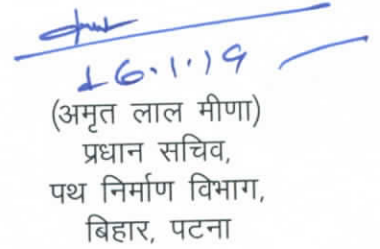 16.1.19
(अमृत लाल मीणा)
प्रधान सचिव,
पथ निर्माण विभाग,
बिहार, पटना